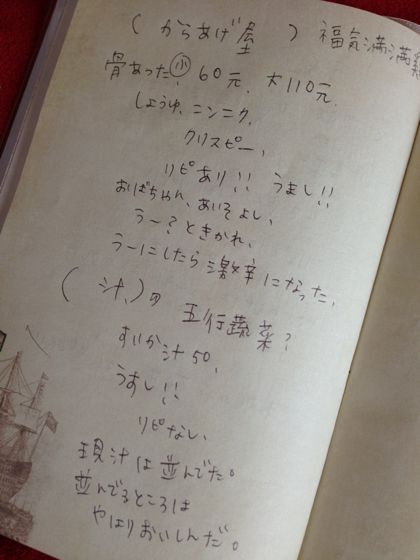 (からあげ屋) 福気満満雞
骨あった、小 60元、大110元、
しょうゆ、ニンニク、
クリスピー、
リピあり!! うまし!!
おばちゃん、あいそよし、
ラー?ときかれ、
ラーにしたら激辛になった、
(汁)の 五行蔬菜?
すいか汁50、
うすし!!
リピなし、
現汁は並んでた。
並んでるところは
やはりおいしんだ。